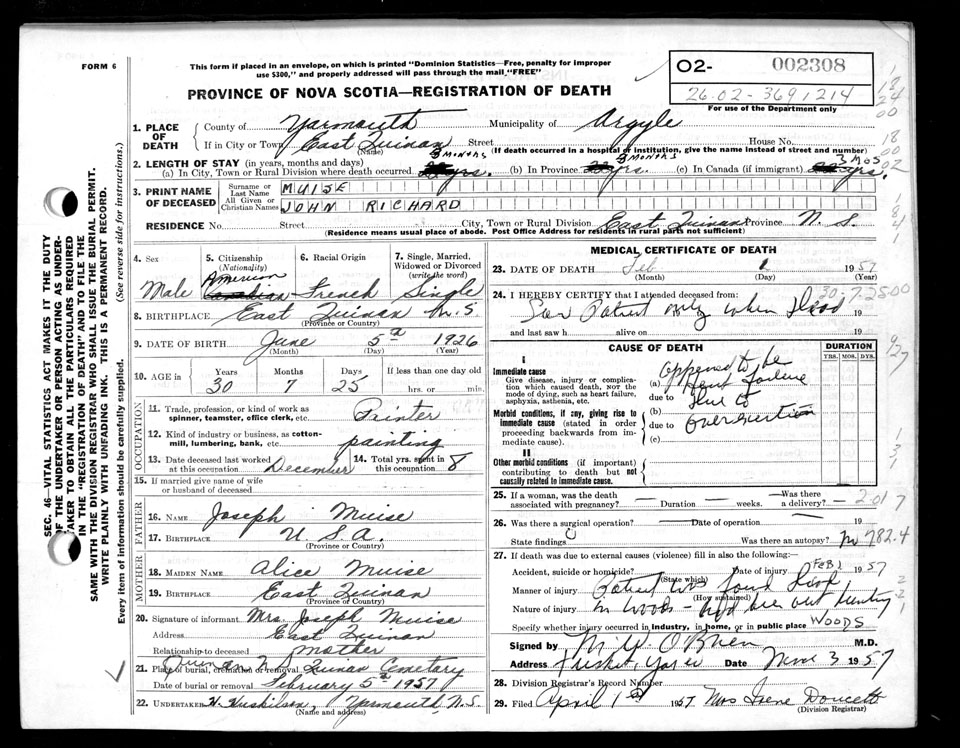 FORM 6
This form if placed in an envelope, on which is printed "Dominion Statistics—Free, penalty for improper
use $300," and properly addressed will pass through the mail "FREE"
PROVINCE OF NOVA SCOTIA—REGISTRATION OF DEATH
O2- 002308
26.02-3691214
For use of the Department only
SEC. 46—VITAL STATISTICS ACT MAKES IT THE DUTY
OF THE UNDERTAKER OR PERSON ACTING AS UNDER-
TAKER TO OBTAIN ALL THE PARTICULARS REQUIRED
IN THE "REGISTRATION OF DEATH" AND TO FILE THE
SAME WITH THE DIVISION REGISTRAR WHO SHALL ISSUE THE BURIAL PERMIT.
WRITE PLAINLY WITH UNFADING INK. THIS IS A PERMANENT RECORD.
Every item of information should be carefully supplied. (See reverse side for instructions.)
1. PLACE OF DEATH
County of Yarmouth Municipality of Argyle
If in City or Town East Quinan Street House No.
(Name) (If death occurred in a hospital or institution, give the name instead of street and number)
2. LENGTH OF STAY (in years, months and days)
(a) In City, Town or Rural Division where death occurred 3 MONTHS yrs. (b) In Province 3 MONTHS yrs. (c) In Canada (if immigrant) 3 MOS yrs.
3. PRINT NAME OF DECEASED
Surname or Last Name MUISE
All Given or Christian Names JOHN RICHARD
RESIDENCE No. Street City, Town or Rural Division East Quinan Province N. S.
(Residence means usual place of abode. Post Office Address for residents in rural parts not sufficient)
4. Sex 5. Citizenship (Nationality) 6. Racial Origin 7. Single, Married, Widowed or Divorced (write the word)
Male American Canadian French Single
8. BIRTHPLACE East Quinan N.S.
(Province or Country)
9. DATE OF BIRTH June 5th 1926
(Month) (Day) (Year)
10. AGE in Years Months Days If less than one day old
30 7 25 hrs. or min.
OCCUPATION
11. Trade, profession, or kind of work as spinner, teamster, office clerk, etc. Painter
12. Kind of industry or business, as cotton-mill, lumbering, bank, etc. painting
13. Date deceased last worked at this occupation December 14. Total yrs. spent in this occupation 8
15. If married give name of wife or husband of deceased
FATHER
16. NAME Joseph Muise
17. BIRTHPLACE U. S. A.
(Province or Country)
MOTHER
18. MAIDEN NAME Alice Muise
19. BIRTHPLACE East Quinan
(Province or Country)
20. Signature of informant Mrs. Joseph Muise
Address East Quinan
Relationship to deceased mother
21. Place of burial, cremation or removal Quinan N.S. Quinan Cemetary
Date of burial or removal February 5th 1957
22. UNDERTAKER H. Huskilson, Yarmouth N.S.
(Name and address)
MEDICAL CERTIFICATE OF DEATH
23. DATE OF DEATH Feb 1957
(Month) (Day) (Year)
24. I HEREBY CERTIFY that I attended deceased from: 30-7-25.00
Seen Patient only when Dead 19
and last saw h alive on 19
CAUSE OF DEATH
DURATION
YRS. MOS. DYS.
I
Immediate cause
Give disease, injury or complication which caused death, NOT the mode of dying, such as heart failure, asphyxia, asthenia, etc.
(a) appened to be Heart failure
due to due to
Morbid conditions, if any, giving rise to immediate cause (stated in order proceeding backwards from immediate cause).
(b)
due to overexertion
(c)
II
Other morbid conditions (if important) contributing to death but not causally related to immediate cause.
25. If a woman, was the death associated with pregnancy? — Duration — weeks. Was there a delivery? — 2017
26. Was there a surgical operation? Date of operation 19
State findings Was there an autopsy? no 782.4
27. If death was due to external causes (violence) fill in also the following:—
Accident, suicide or homicide? Date of injury FEB 1 1957
(State which)
Manner of injury Patient was found Dead
(How sustained)
Nature of injury in woods - had been out hunting
Specify whether injury occurred in industry, in home, or in public place WOODS
Signed by M. W. O'Brien M.D.
Address Tusket, Yar. Date 3 1957
28. Division Registrar's Record Number
29. Filed April 1st 1957 Mrs Irene Doucett
(Division Registrar)